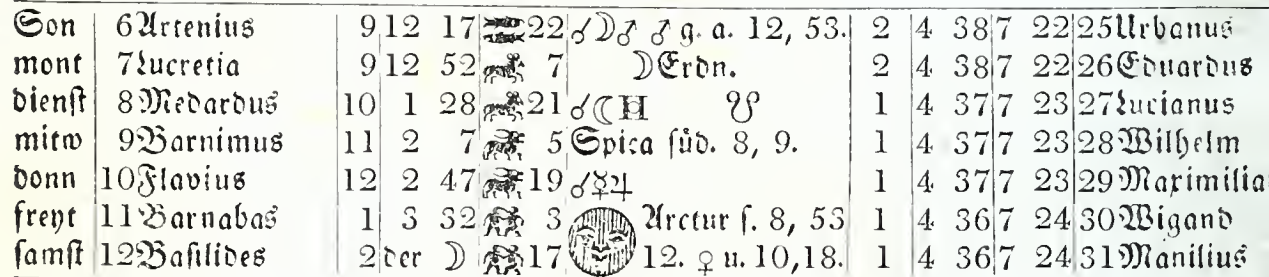 Son 6 Artenius 9 12 17 22 ☌☽♂ ♂ g. a. 12, 53. 2 4 38 7 22 25 Urbanus
mont 7 Lucretia 9 12 52 7 ☽Erdn. 2 4 38 7 22 26 Eduardus
dienſt 8 Medardus 10 1 28 21 ☌☾♅ ☋ 1 4 37 7 23 27 Lucianus
mitw 9 Barnimus 11 2 7 5 Spica ſüd. 8, 9. 1 4 37 7 23 28 Wilhelm
donn 10 Flavius 12 2 47 19 ☌☿♃ 1 4 37 7 23 29 Maximilia
freyt 11 Barnabas 1 3 32 3 Arctur ſ. 8, 53 1 4 36 7 24 30 Wigand
ſamſt 12 Baſilides 2 der ☽ 17 12. ♀ u. 10,18. 1 4 36 7 24 31 Manilius